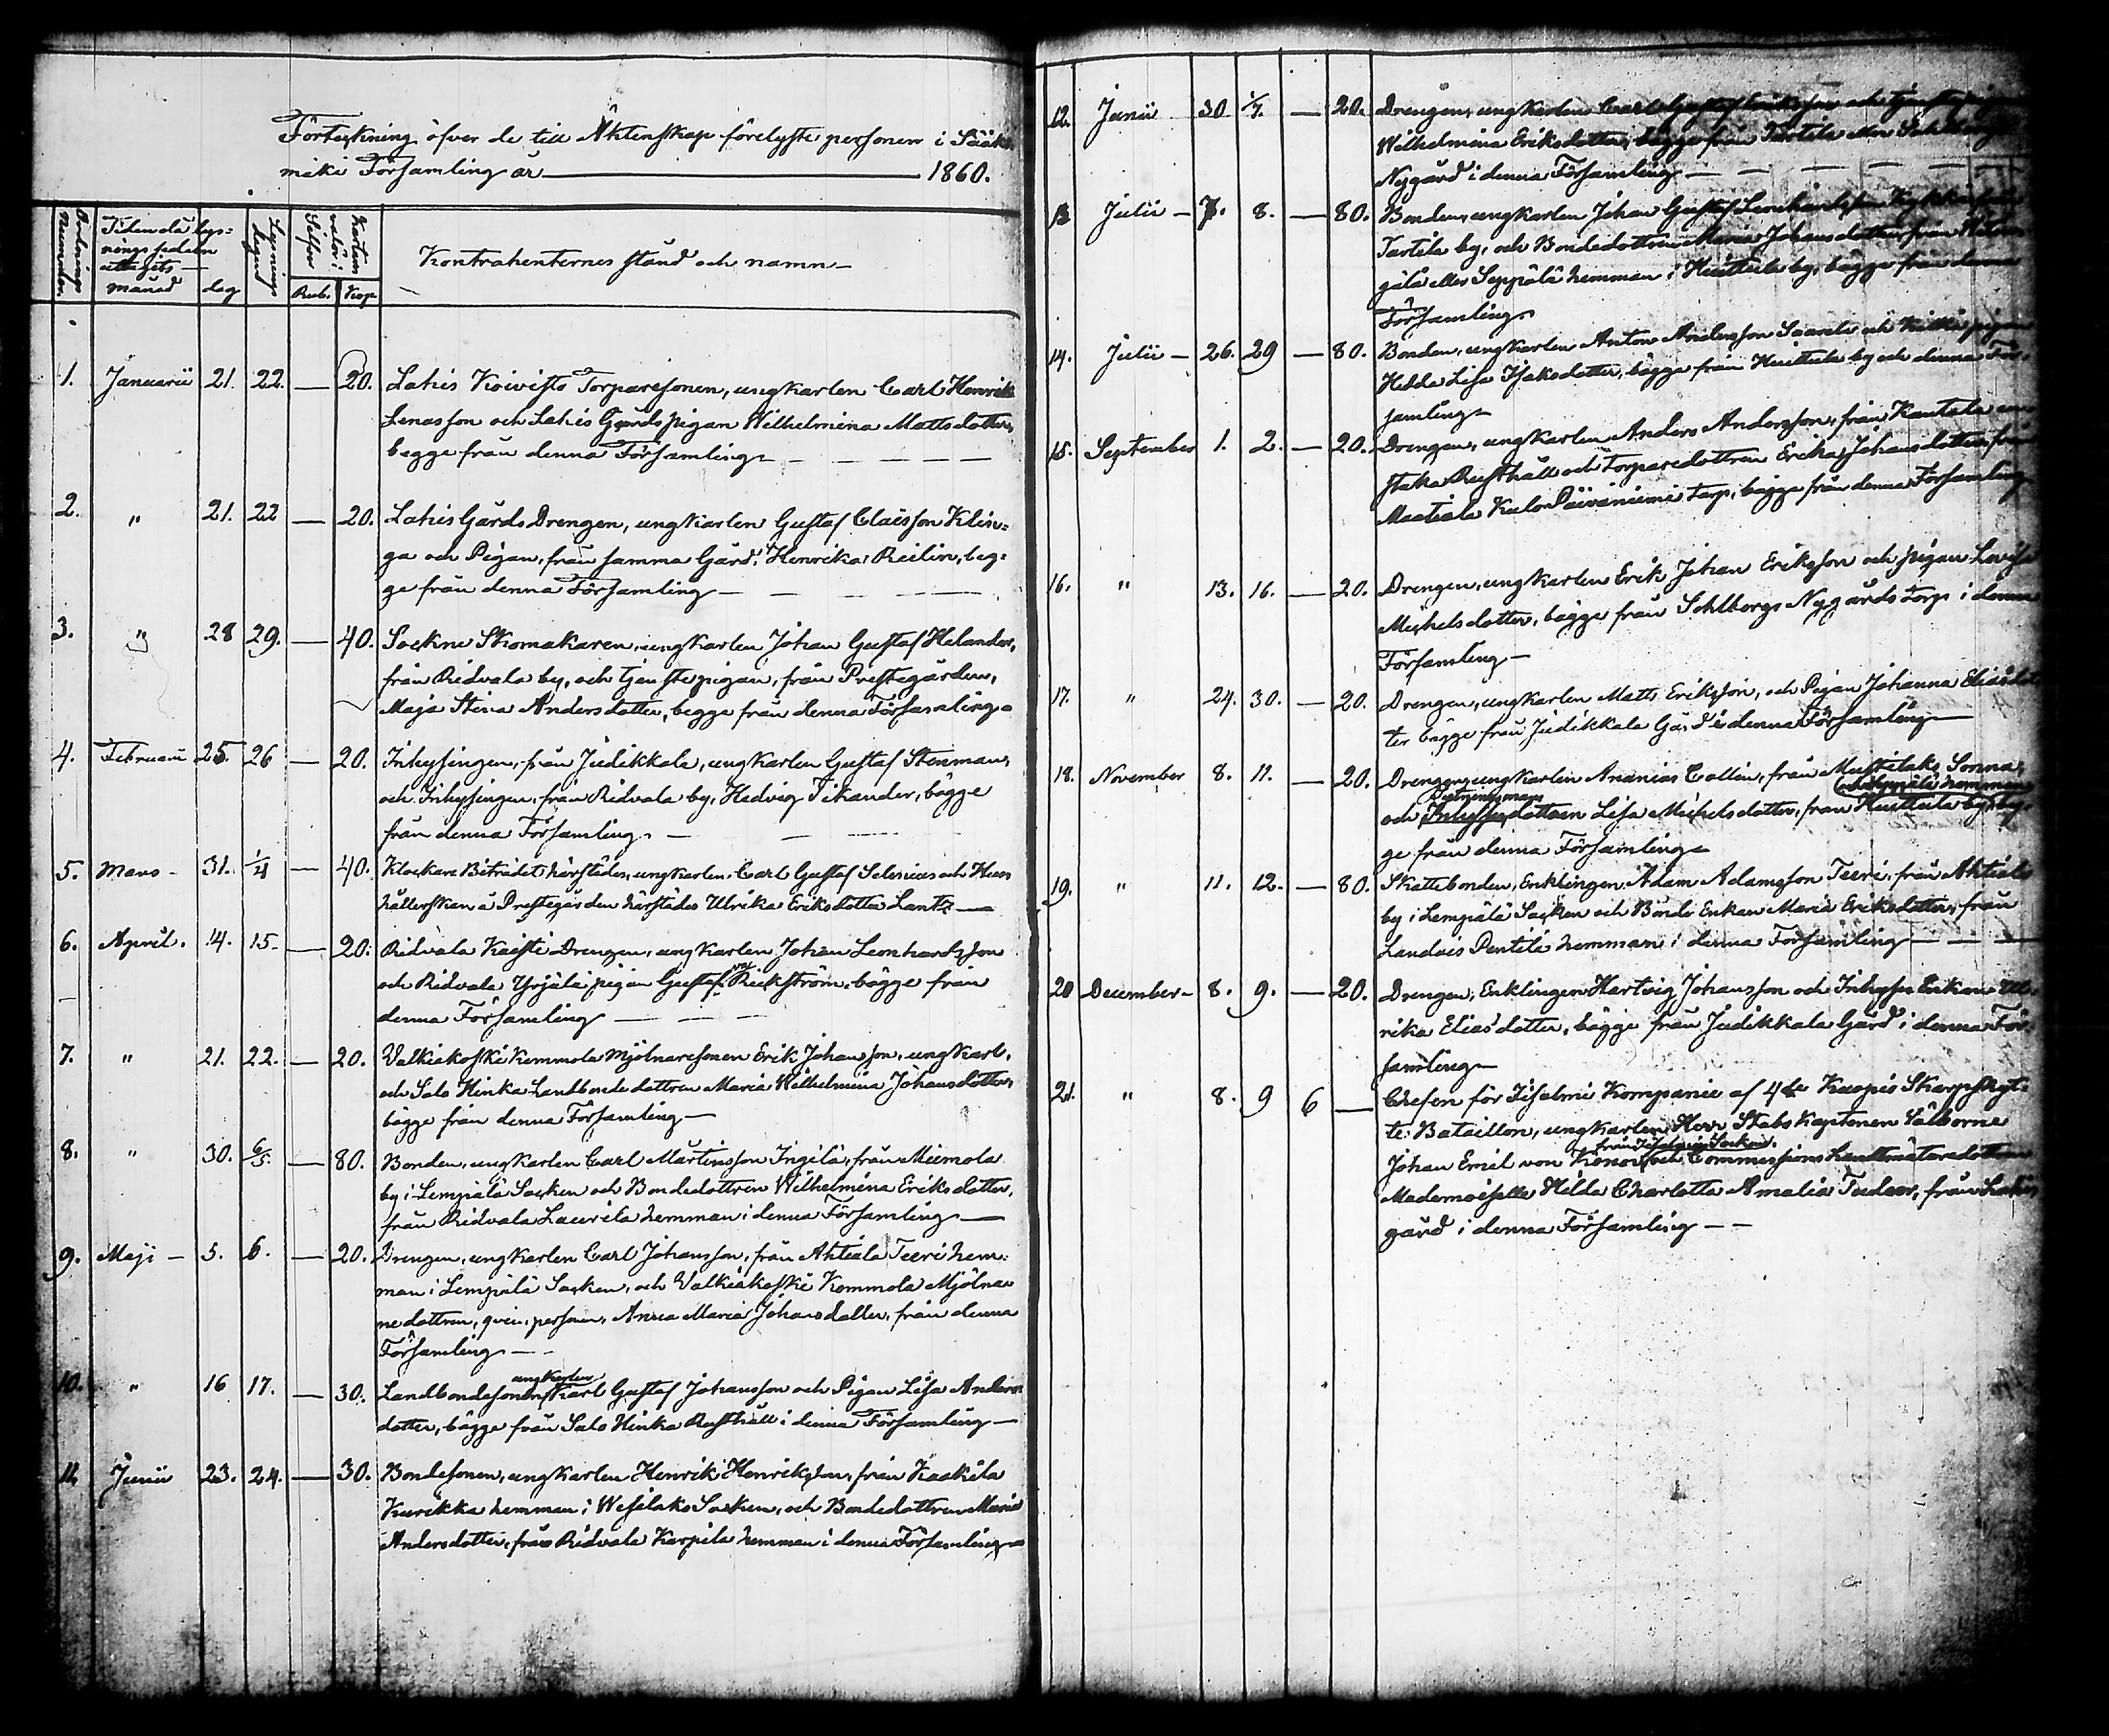 Förteckning öfver de till Äktenskap förelyste personer i Sääks-
mäki Församling år 1860.
Ordnings Nummer.
Tiden då lys-
nings sedeln
uttagits
månad dag
Lysnings dagen
Karten valör i Silfver
Rub. Kop.
Kontrahenternes stånd och namn
1. Januarii 21. 22. — 20. Lahis Koivisto Torparesonen, ungkarlen Carl Henrik
Lenasson och Lahis Gårds pigan Wilhelmina Mattsdotter,
begge från denna Församling
2. " 21. 22 — 20. Lahis Gårds Drengen, ungkarlen Gustaf Claësson Klin-
ga och Pigan, från samma Gård, Henrika Reilin, beg-
ge från denna Församling
3. " 28 29. — 40. Sockne Skomakaren, ungkarlen Johan Gustaf Helander,
från Ridvala by, och tjenstepigan, från Prestegården,
Maja Stina Andersdotter, begge från denna Församling
4. Februarii 25. 26 — 20. Inhysingen, från Judikkala, ungkarlen Gustaf Stenman,
och Inhysingen, från Ridvala by, Hedvig Tikander, bägge
från denna Församling
5. Mars 31. 1/4 — 40. Klockare Biträdet härstädes, ungkarlen Carl Gustaf Selenius och Hus
hållerskan å Prestegården härstädes Ulrika Eriksdotter Lantz
6. April. 14. 15. — 20. Ridvala Kaisti Drengen, ungkarlen Johan Leonhardsson
och Ridvala Yrjälä pigan Gustafva Rickström, bägge från
denna Församling
7. " 21. 22. — 20. Valkiakoski Kemmola Mjölnaresonen Erik Johansson, ungkarl,
och Salo Hinka Landbondedottren Maria Wilhelmina Johansdotter,
bägge från denna Församling
8. " 30. 6/5. — 80. Bonden, ungkarlen Carl Martinsson Ingilä, från Miemola
by i Lempälä Socken och Bondedottren Wilhelmina Eriksdotter,
från Ridvala Laurila hemman i denna Församling
9. Maji 5. 6. — 20. Drengen, ungkarlen Carl Johansson, från Ahtiala Teeri hem-
man i Lempälä Socken, och Valkiakoski Kemmola Mjölna-
redottren, qvin. person, Anna Maria Johansdotter, från denna
Församling
10. " 16 17. — 30. Landbondesonen, ungkarlen Karl Gustaf Johansson och Pigan Lisa Anders-
dotter, bägge från Salo Hinka Rusthåll i denna Församling
11. Junii 23. 24. — 30. Bondesonen, ungkarlen Henrik Henriksson, från Kaakila
Kurikka hemman i Wesilaks Socken, och Bondedottren Maria
Andersdotter, från Ridvala Karpila hemman i denna Församling
12. Junii 30 1/7. — 20. Drengen, ungkarlen Carl Gustaf Eriksson och tjenstepigan
Wilhelmina Eriksdotter, bägge från Tartila
Nygård i denna Församling
13 Julii 7. 8. — 80. Bonden, ungkarlen Johan Gustaf Leonhardsson från
Tartila by, och Bondedottren Maria Johansdotter, från
gälä eller Seppälä hemman i Huittula by, bägge från denna
Församling
14. Julii 26. 29 — 80. Bonden, ungkarlen Anton Andersson Saarela och pigan
Hedda Lisa Isaksdotter, bägge från Huittula by och denna För-
samling
15. September 1. 2. — 20. Drengen, ungkarlen Anders Andersson, från Kantala
staka Rusthåll och Torparedottren Erika Johansdotter, från
Maatiala Kulo Päiväniemi torp, bägge från denna Församling
16. " 13. 16. — 20. Drengen, ungkarlen Erik Johan Eriksson och pigan Lovisa
Michelsdotter, bägge från Sohlbergs Nygårds torp i denna
Församling
17. " 24. 30. — 20. Drengen, ungkarlen Matts Eriksson, och Pigan Johanna Eliædot
ter bägge från Judikkala Gård i denna Församling
18. November 8. 11. — 20. Drengen, ungkarlen Ananias Collin, från
och dottren Lisa Michelsdotter, från Huittula by och Seppälä hemman, beg-
ge från denna Församling
19. " 11. 12. — 80. Skattebonden, Enklingen Adam Adamsson Teeri, från Ahtiala
by i Lempälä Socken och Bonde Enkan Maria Eriksdotter, från
Landois Pentilä hemman i denna Församling
20 December 8. 9. — 20. Drengen, Enklingen Hartvig Johansson och Inhyses Enkan Ul-
rika Eliasdotter, bägge från Judikkala Gård i denna För-
samling
21. " 8. 9 6 — Chefen för Iisalmi Kompanie af 4de Kuopio Skarpskyt-
te Bataillon, ungkarlen, Herr Stabs Kaptenen Välborne
Johan Emil von Konow från Iisalmi Socken, och Commissions Landtmätaredottren
Mademoiselle Hilda Charlotta Amalia Tudeer, från Lahis
gård i denna Församling